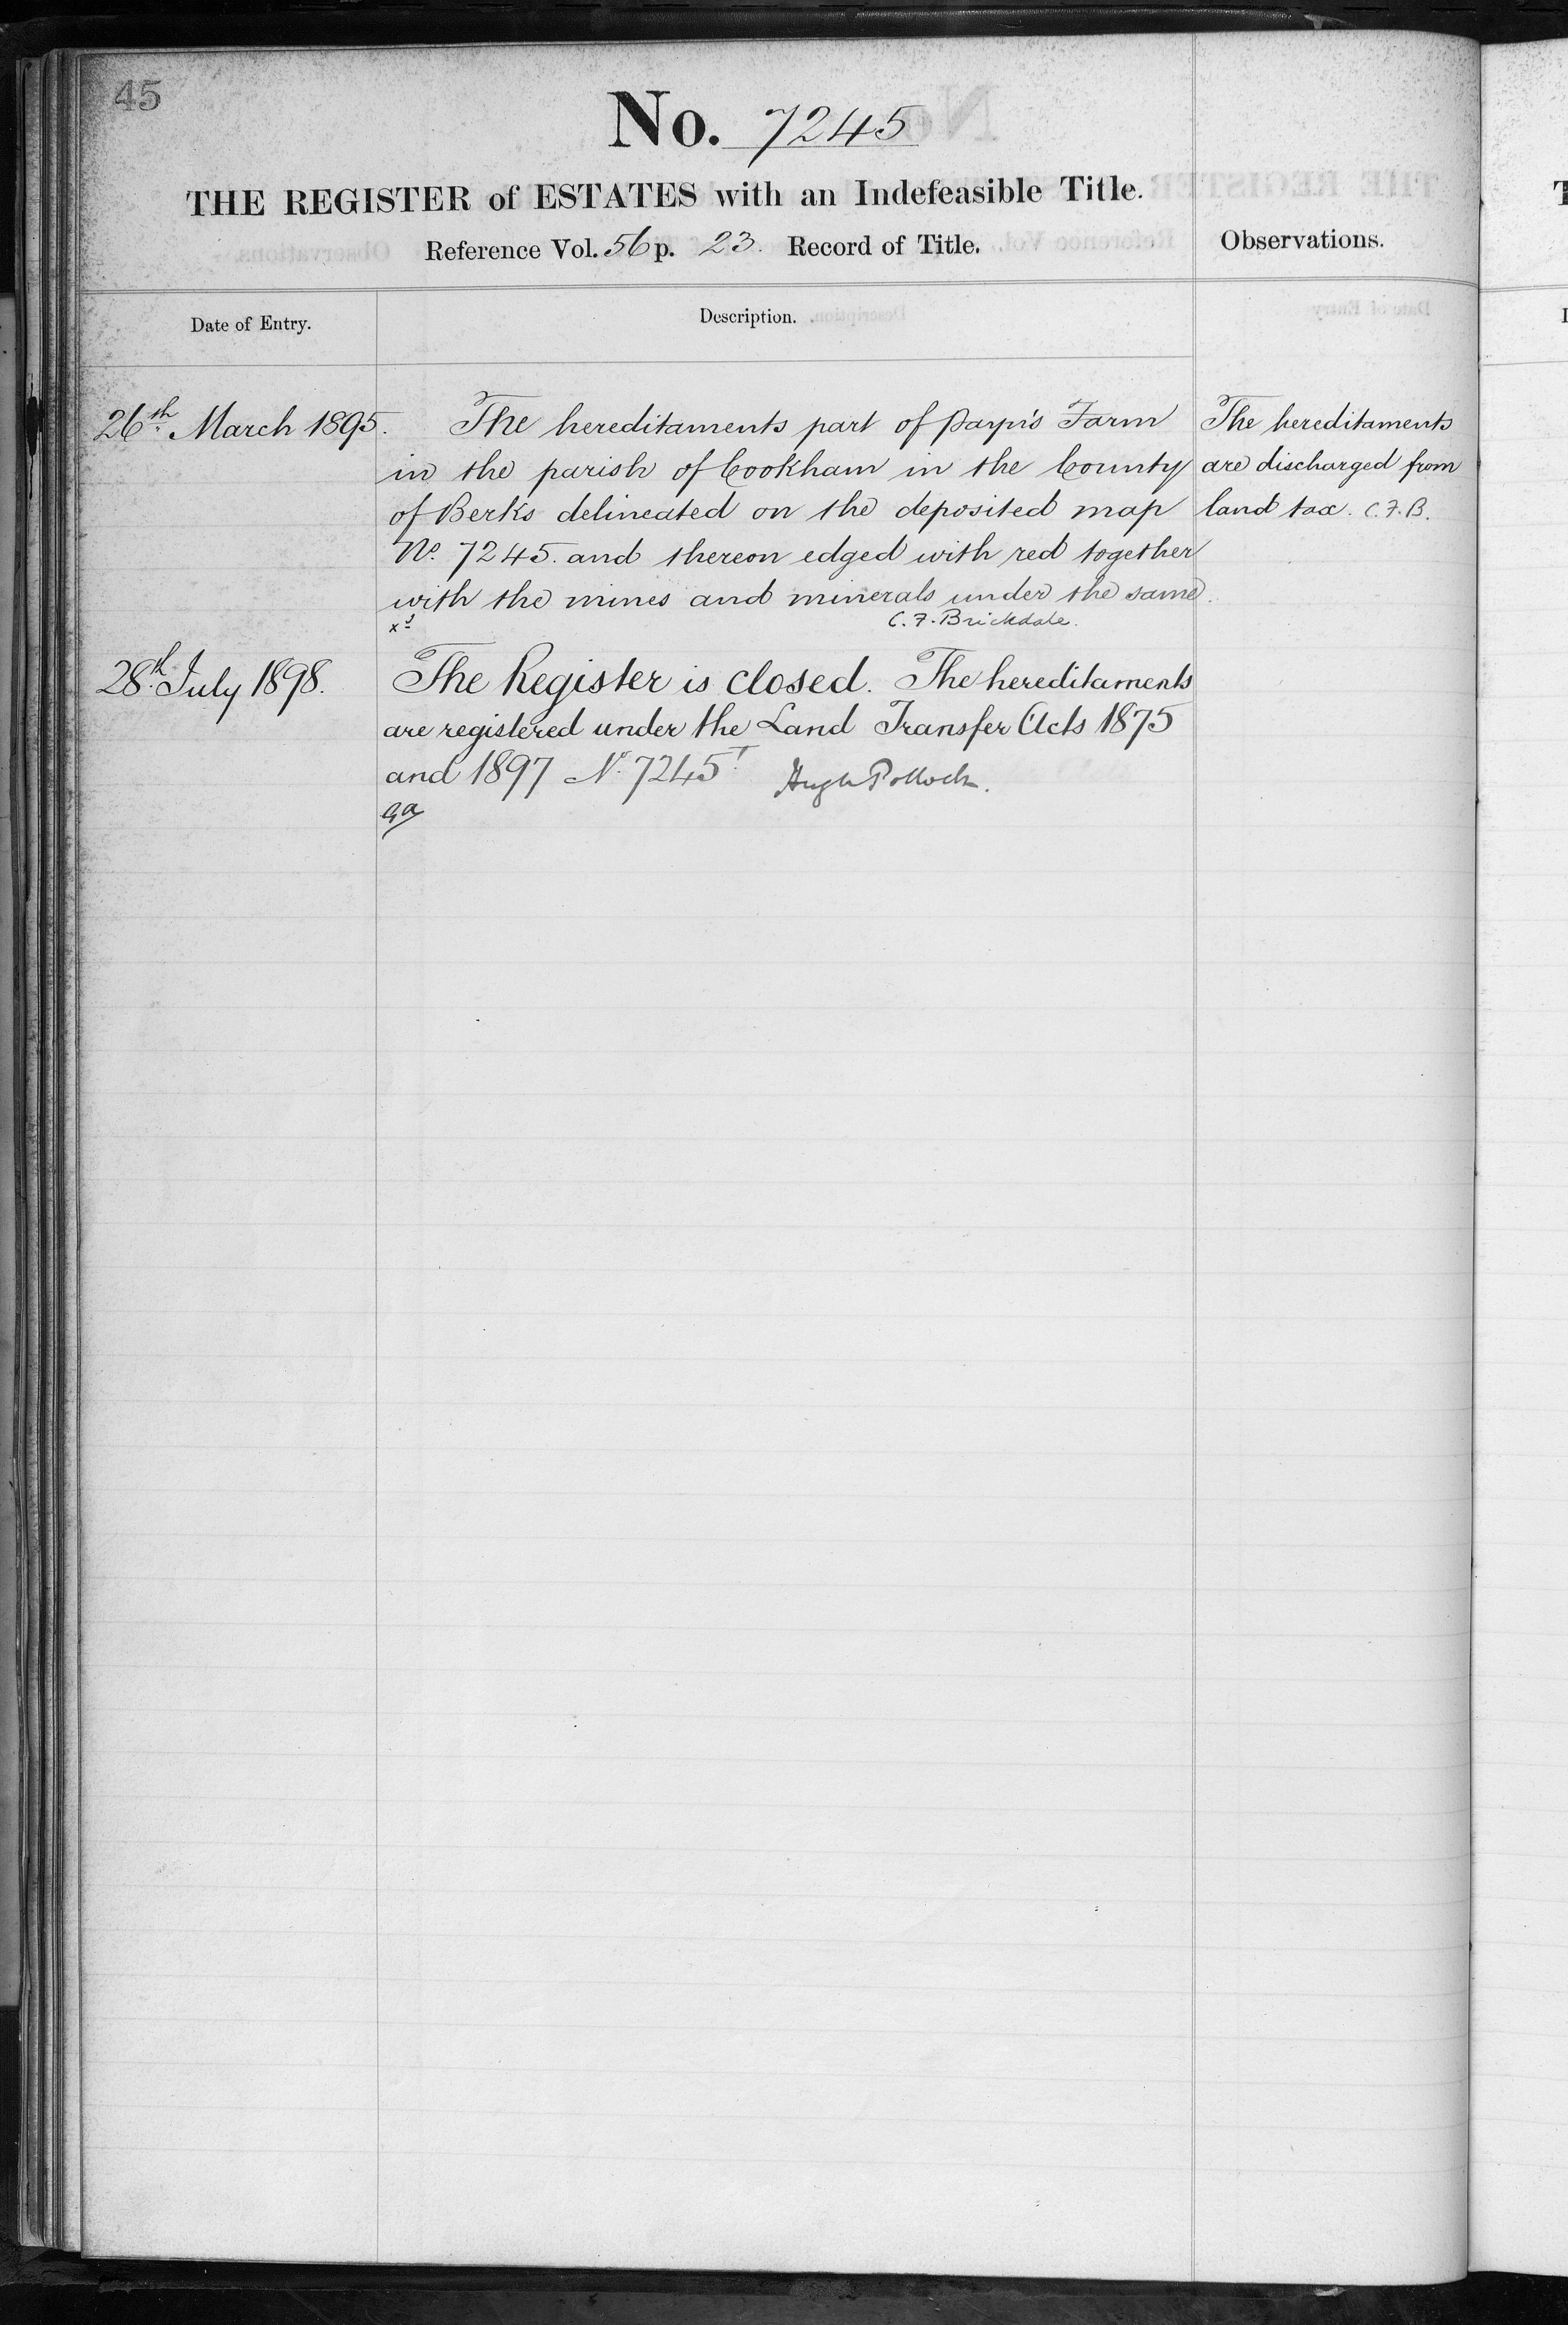 45
No. 7245
THE REGISTER of ESTATES with an Indefeasible Title.
Reference Vol. 56 p. 23. Record of Title.
Observations.
Date of Entry.
Description.
26th March 1895.
The hereditaments part of Farm
in the parish of Cookham in the County
of Berks delineated on the deposited map
No. 7245. and thereon edged with red together
with the mines and minerals under the same.
C. F. Brickdale.
The hereditaments
are discharged from
land tax. C. F. B.
28th July 1898.
The Register is closed. The hereditaments
are registered under the Land Transfer Acts 1875
and 1897 No. 7245T Hugh Pollock.